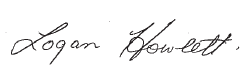 Logan Howlett.